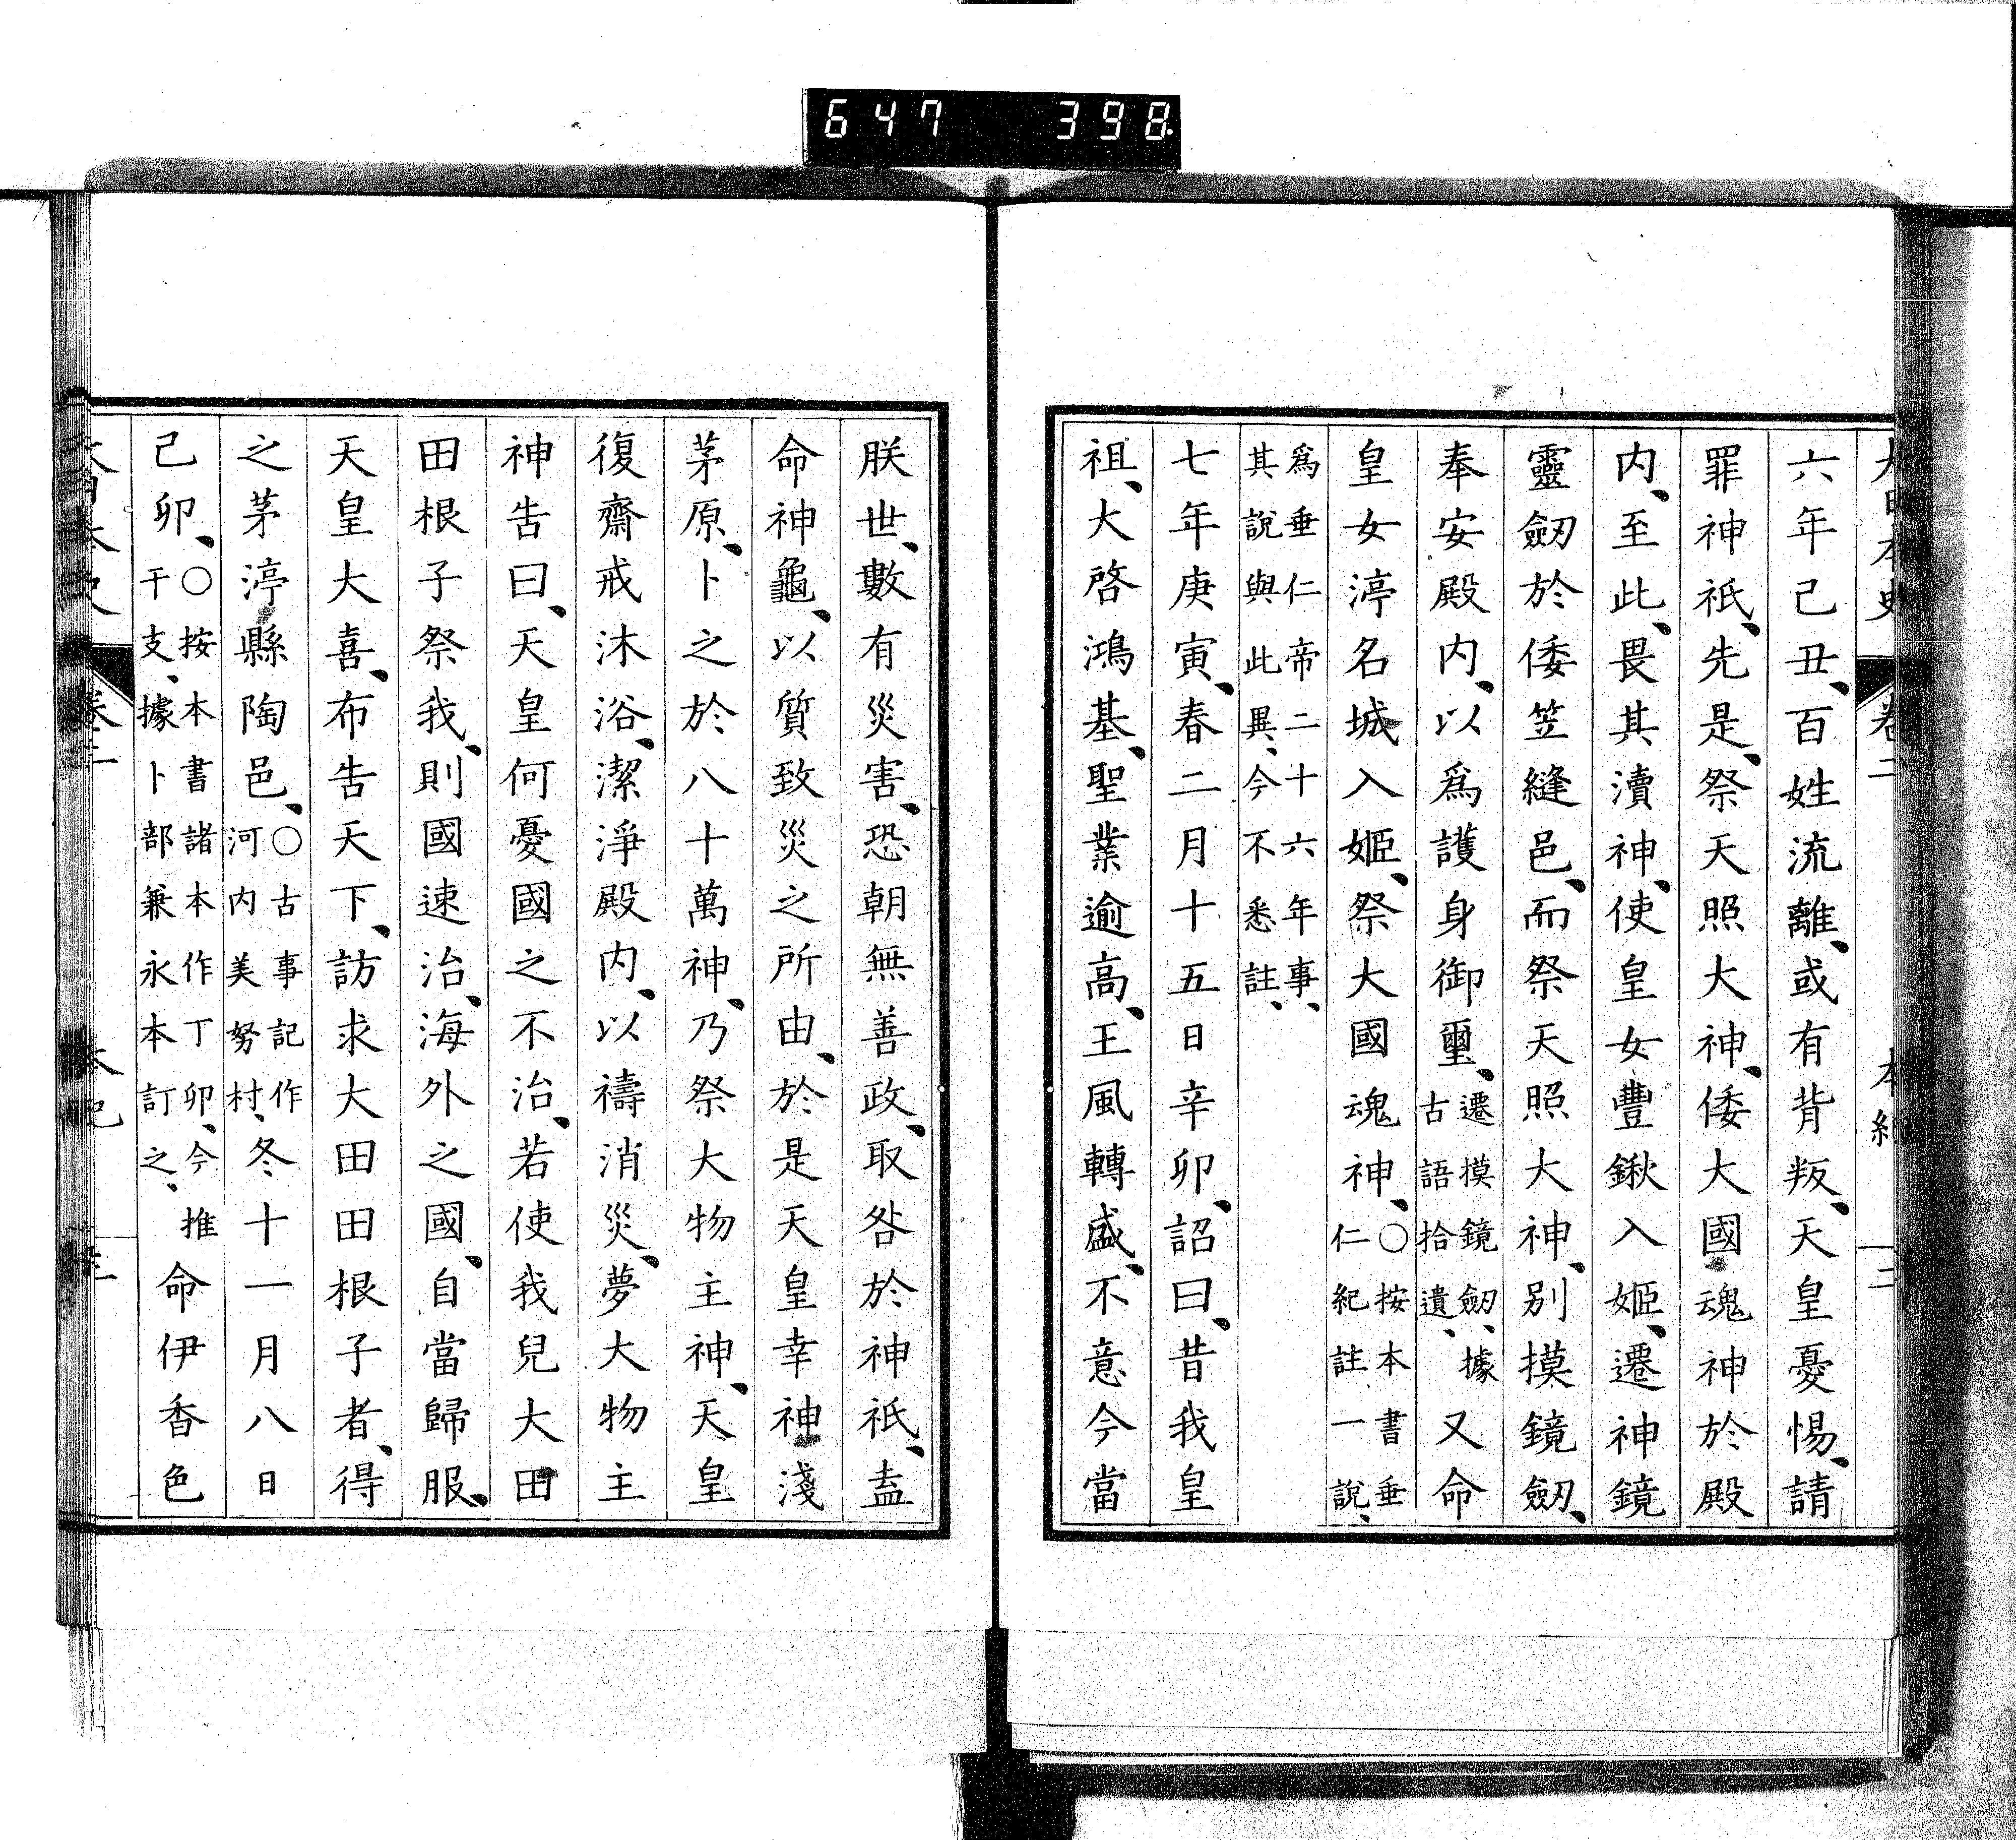 647 398
大日本史 卷二 本紀 二
六年己丑、百姓流離、或有背叛、天皇憂惕、請
罪神祇、先是、祭天照大神、倭大國魂神於殿
内、至此、畏其瀆神、使皇女豐鍬入姬、遷神鏡
靈劒於倭笠縫邑、而祭天照大神、別摸鏡劒、
奉安殿内、以爲護身御璽、遷摸鏡劒、據古語拾遺、又命
皇女渟名城入姬、祭大國魂神、○按本書垂仁紀註一說、
爲垂仁帝二十六年事、其說與此異、今不悉註、
七年庚寅、春二月十五日辛卯、詔曰、昔我皇
祖、大啓鴻基、聖業逾高、王風轉盛、不意今當
朕世、數有災害、恐朝無善政、取咎於神祇、盍
命神龜、以質致災之所由、於是天皇幸神淺
茅原、卜之於八十萬神、乃祭大物主神、天皇
復齋戒沐浴、潔淨殿内、以禱消災、夢大物主
神告曰、天皇何憂國之不治、若使我兒大田
田根子祭我、則國速治、海外之國、自當歸服、
天皇大喜、布告天下、訪求大田田根子者、得
之茅渟縣陶邑、○古事記作河内美努村、冬十一月八日
己卯、○按本書諸本作丁卯、今推干支、據卜部兼永本訂之、命伊香色